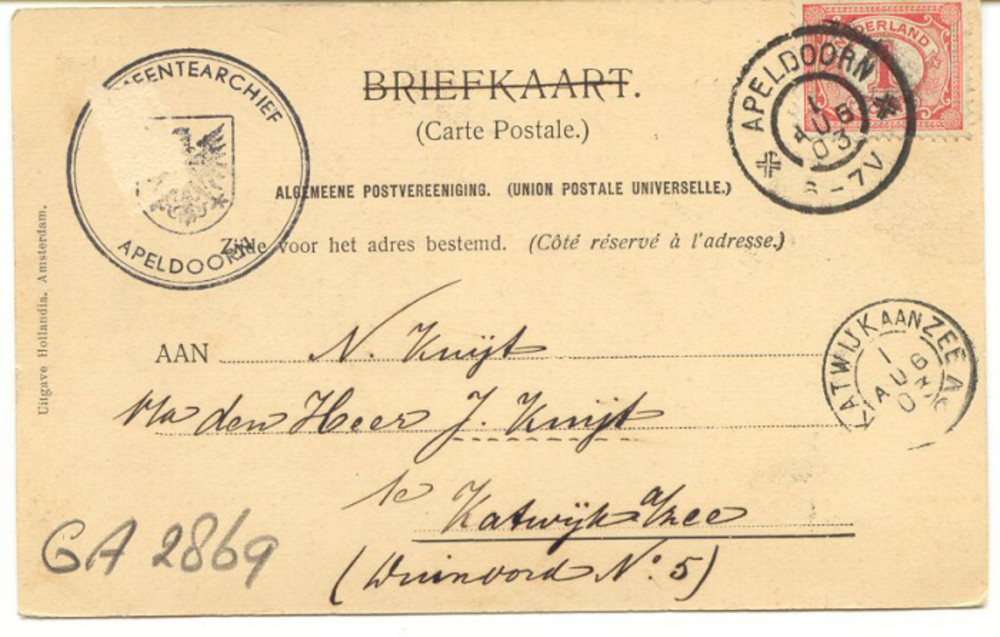 BRIEFKAART.
(Carte Postale.)
ALGEMEENE POSTVEREENIGING. (UNION POSTALE UNIVERSELLE.)
Zijde voor het adres bestemd. (Côté réservé à l'adresse.)
EENTEARCHIEF
APELDOORN
NEDERLAND
1
APELDOORN
1
AUG
03
-7V
Uitgave Hollandia. Amsterdam.
AAN N. Kuijt
den Heer J. Kuijt
te
Katwijk a/zee
(Duinoord No. 5)
KATWIJK AAN ZEE
1
AUG
03
GA 2869